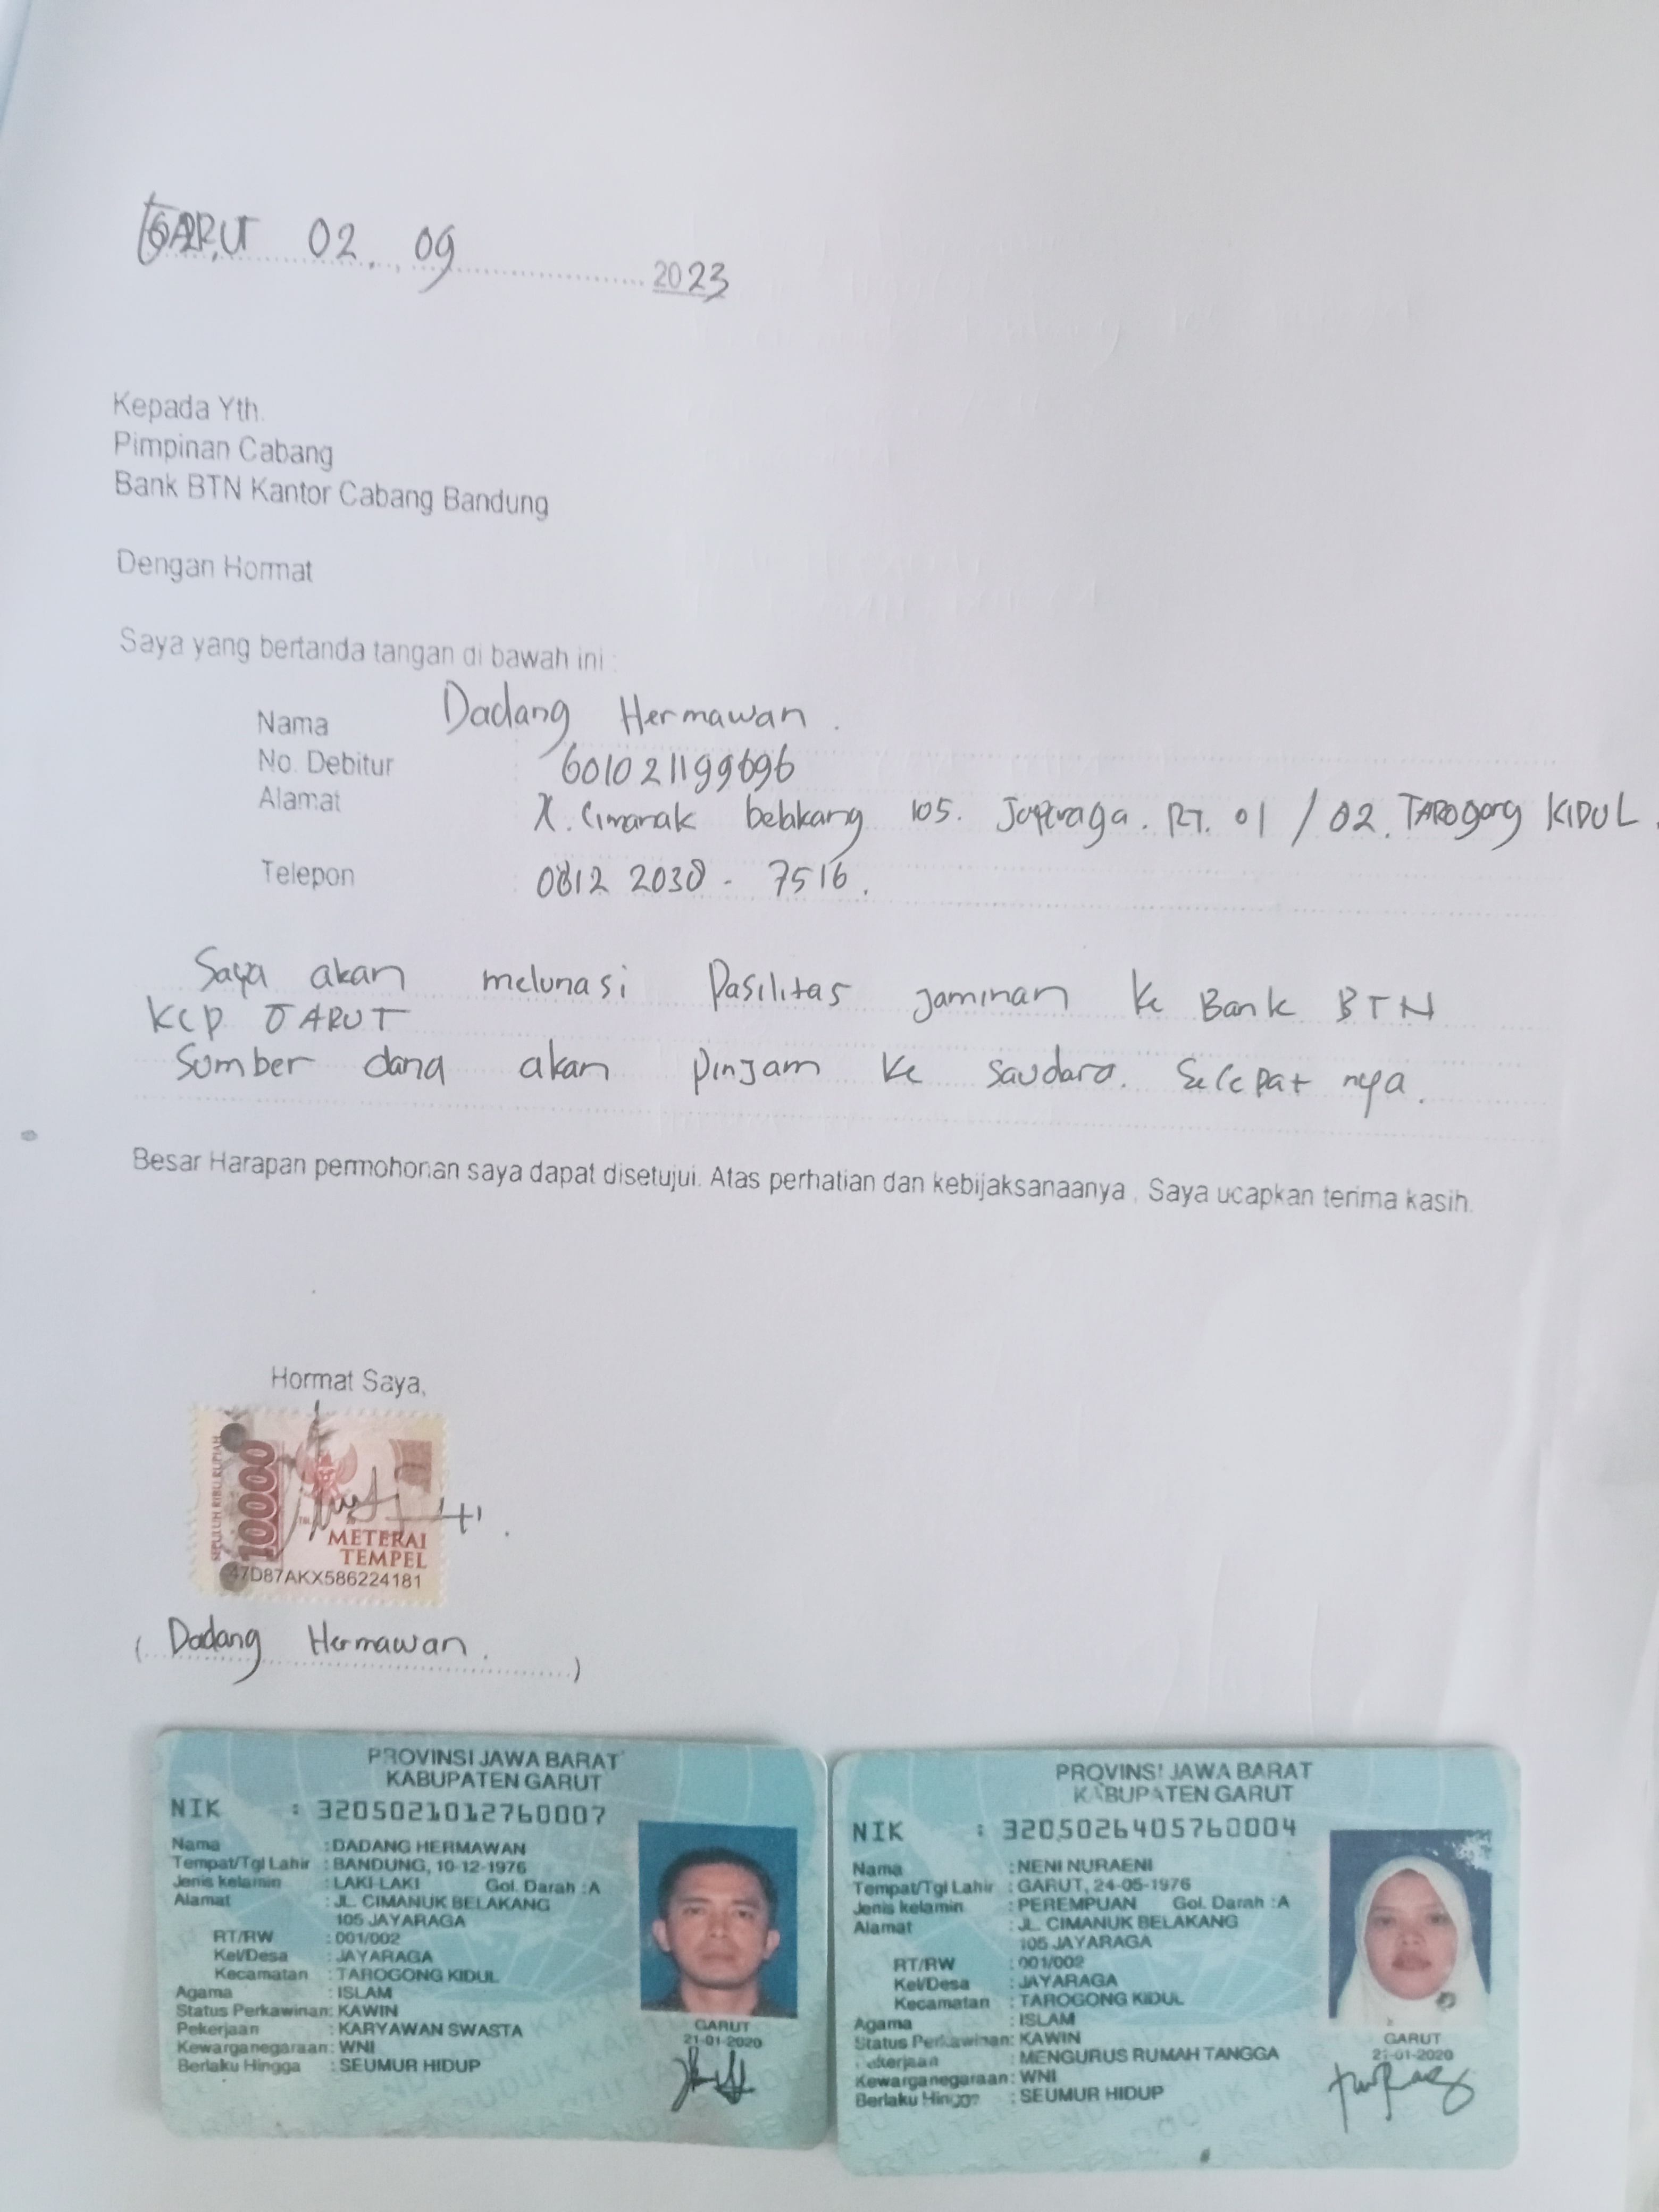 GARUT 02. 09 2023
Kepada Yth.
Pimpinan Cabang
Bank BTN Kantor Cabang Bandung
Dengan Hormat
Saya yang bertanda tangan di bawah ini :
Nama Dadang Hermawan.
No. Debitur : 601021199696
Alamat Cimanuk belakang 105. Jayaraga. RT. 01 / 02. TAROgong KIDUL.
Telepon : 0812 2030 - 7516.
Saya akan melunasi Pasilitas jaminan ke Bank BTN
KCP GARUT
Sumber dana akan pinjam ke saudara. Secepat nya.
Besar Harapan permohonan saya dapat disetujui. Atas perhatian dan kebijaksanaanya , Saya ucapkan terima kasih.
Hormat Saya,
SEPULUH RIBU RUPIAH
10000
METERAI
TEMPEL
47D87AKX586224181
( Dadang Hermawan. )
PROVINSI JAWA BARAT
KABUPATEN GARUT
NIK : 3205021012760007
Nama : DADANG HERMAWAN
Tempat/Tgl Lahir : BANDUNG, 10-12-1976
Jenis kelamin : LAKI-LAKI Gol. Darah : A
Alamat : JL. CIMANUK BELAKANG
105 JAYARAGA
RT/RW : 001/002
Kel/Desa : JAYARAGA
Kecamatan : TAROGONG KIDUL
Agama : ISLAM
Status Perkawinan: KAWIN
Pekerjaan : KARYAWAN SWASTA
Kewarganegaraan: WNI
Berlaku Hingga : SEUMUR HIDUP
GARUT
21-01-2020
PROVINSI JAWA BARAT
KABUPATEN GARUT
NIK : 3205026405760004
Nama : NENI NURAENI
Tempat/Tgl Lahir : GARUT, 24-05-1976
Jenis kelamin : PEREMPUAN Gol. Darah : A
Alamat : JL. CIMANUK BELAKANG
105 JAYARAGA
RT/RW : 001/002
Kel/Desa : JAYARAGA
Kecamatan : TAROGONG KIDUL
Agama : ISLAM
Status Perkawinan: KAWIN
Pekerjaan : MENGURUS RUMAH TANGGA
Kewarganegaraan: WNI
Berlaku Hingga : SEUMUR HIDUP
GARUT
21-01-2020